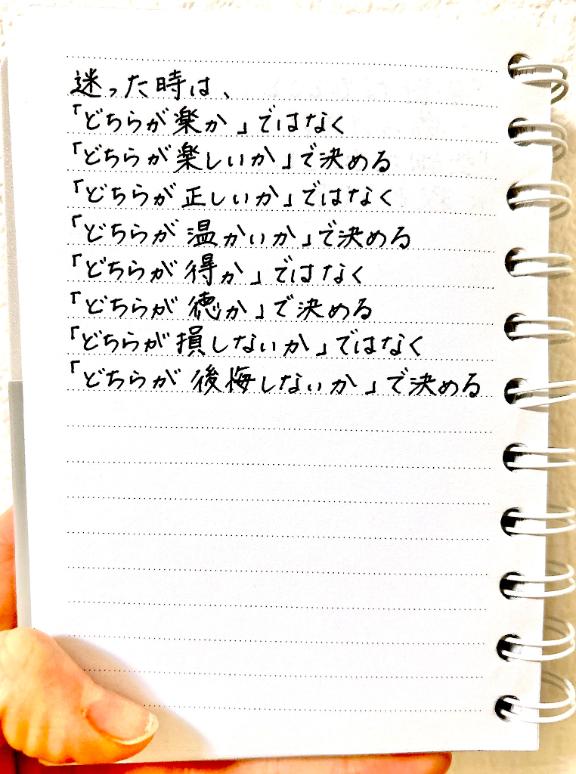 迷った時は、
「どちらが楽か」ではなく
「どちらが楽しいか」で決める
「どちらが正しいか」ではなく
「どちらが温かいか」で決める
「どちらが得か」ではなく
「どちらが徳か」で決める
「どちらが損しないか」ではなく
「どちらが後悔しないか」で決める